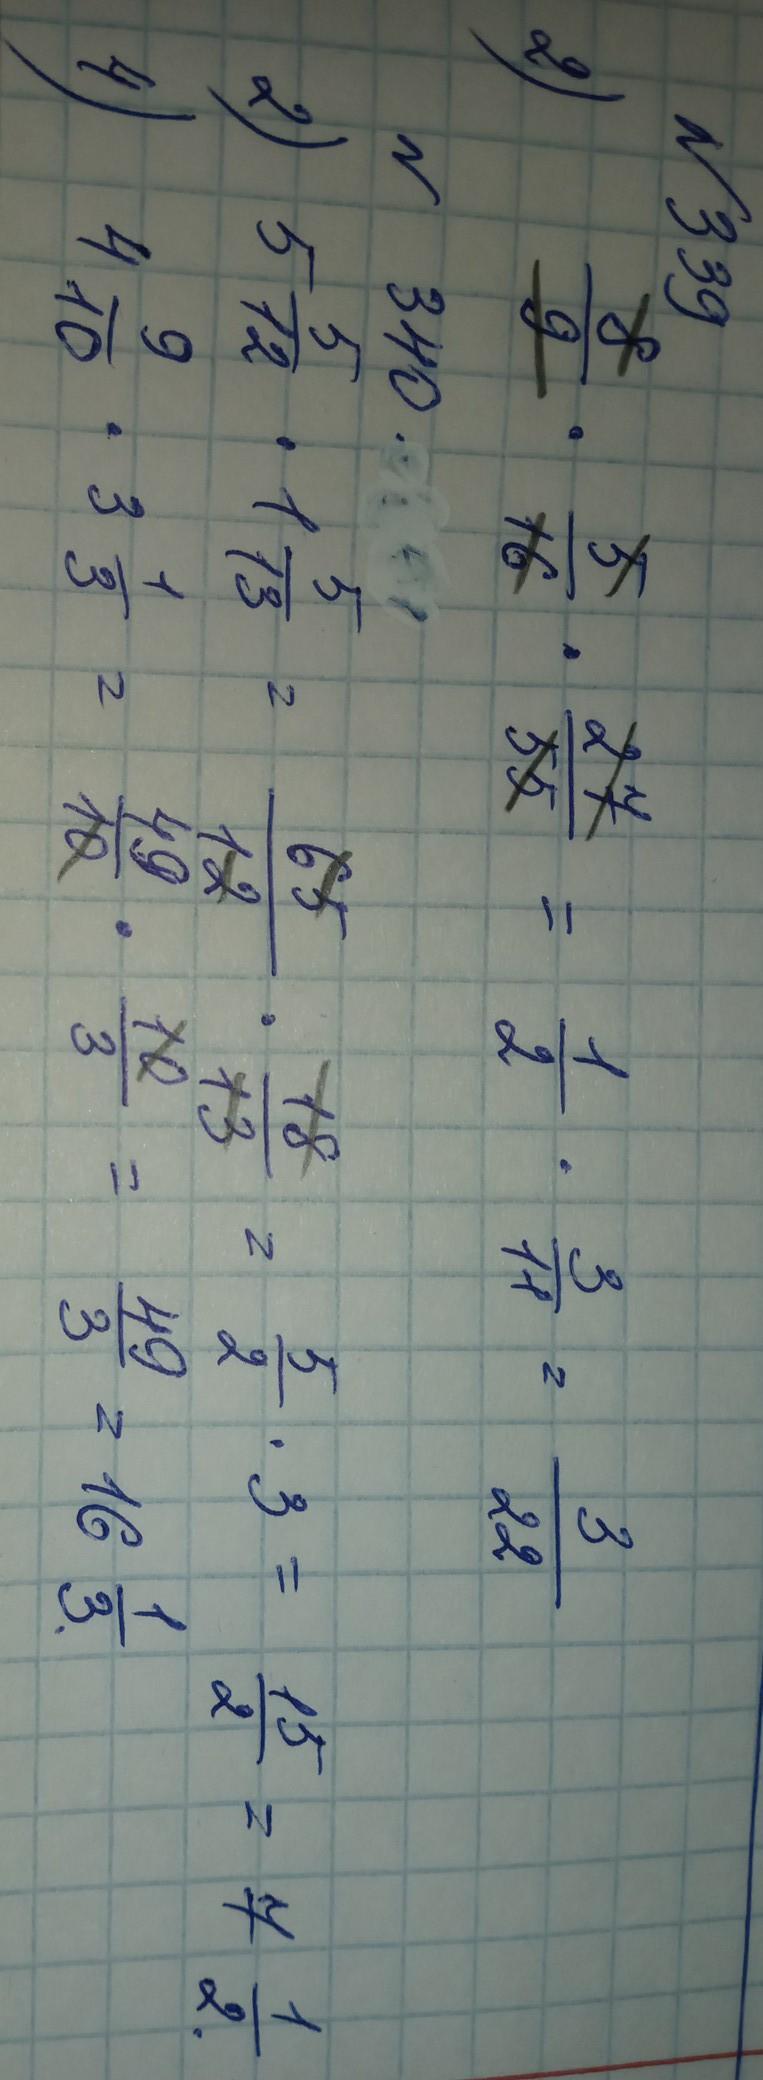 N339
2) 8/9 · 5/16 · 27/55 = 1/2 · 3/11 = 3/22
N 340.
2) 5 5/12 · 1 5/13 = 65/12 · 18/13 = 5/2 · 3 = 15/2 = 7 1/2.
4) 4 9/10 · 3 1/3 = 49/10 · 10/3 = 49/3 = 16 1/3.